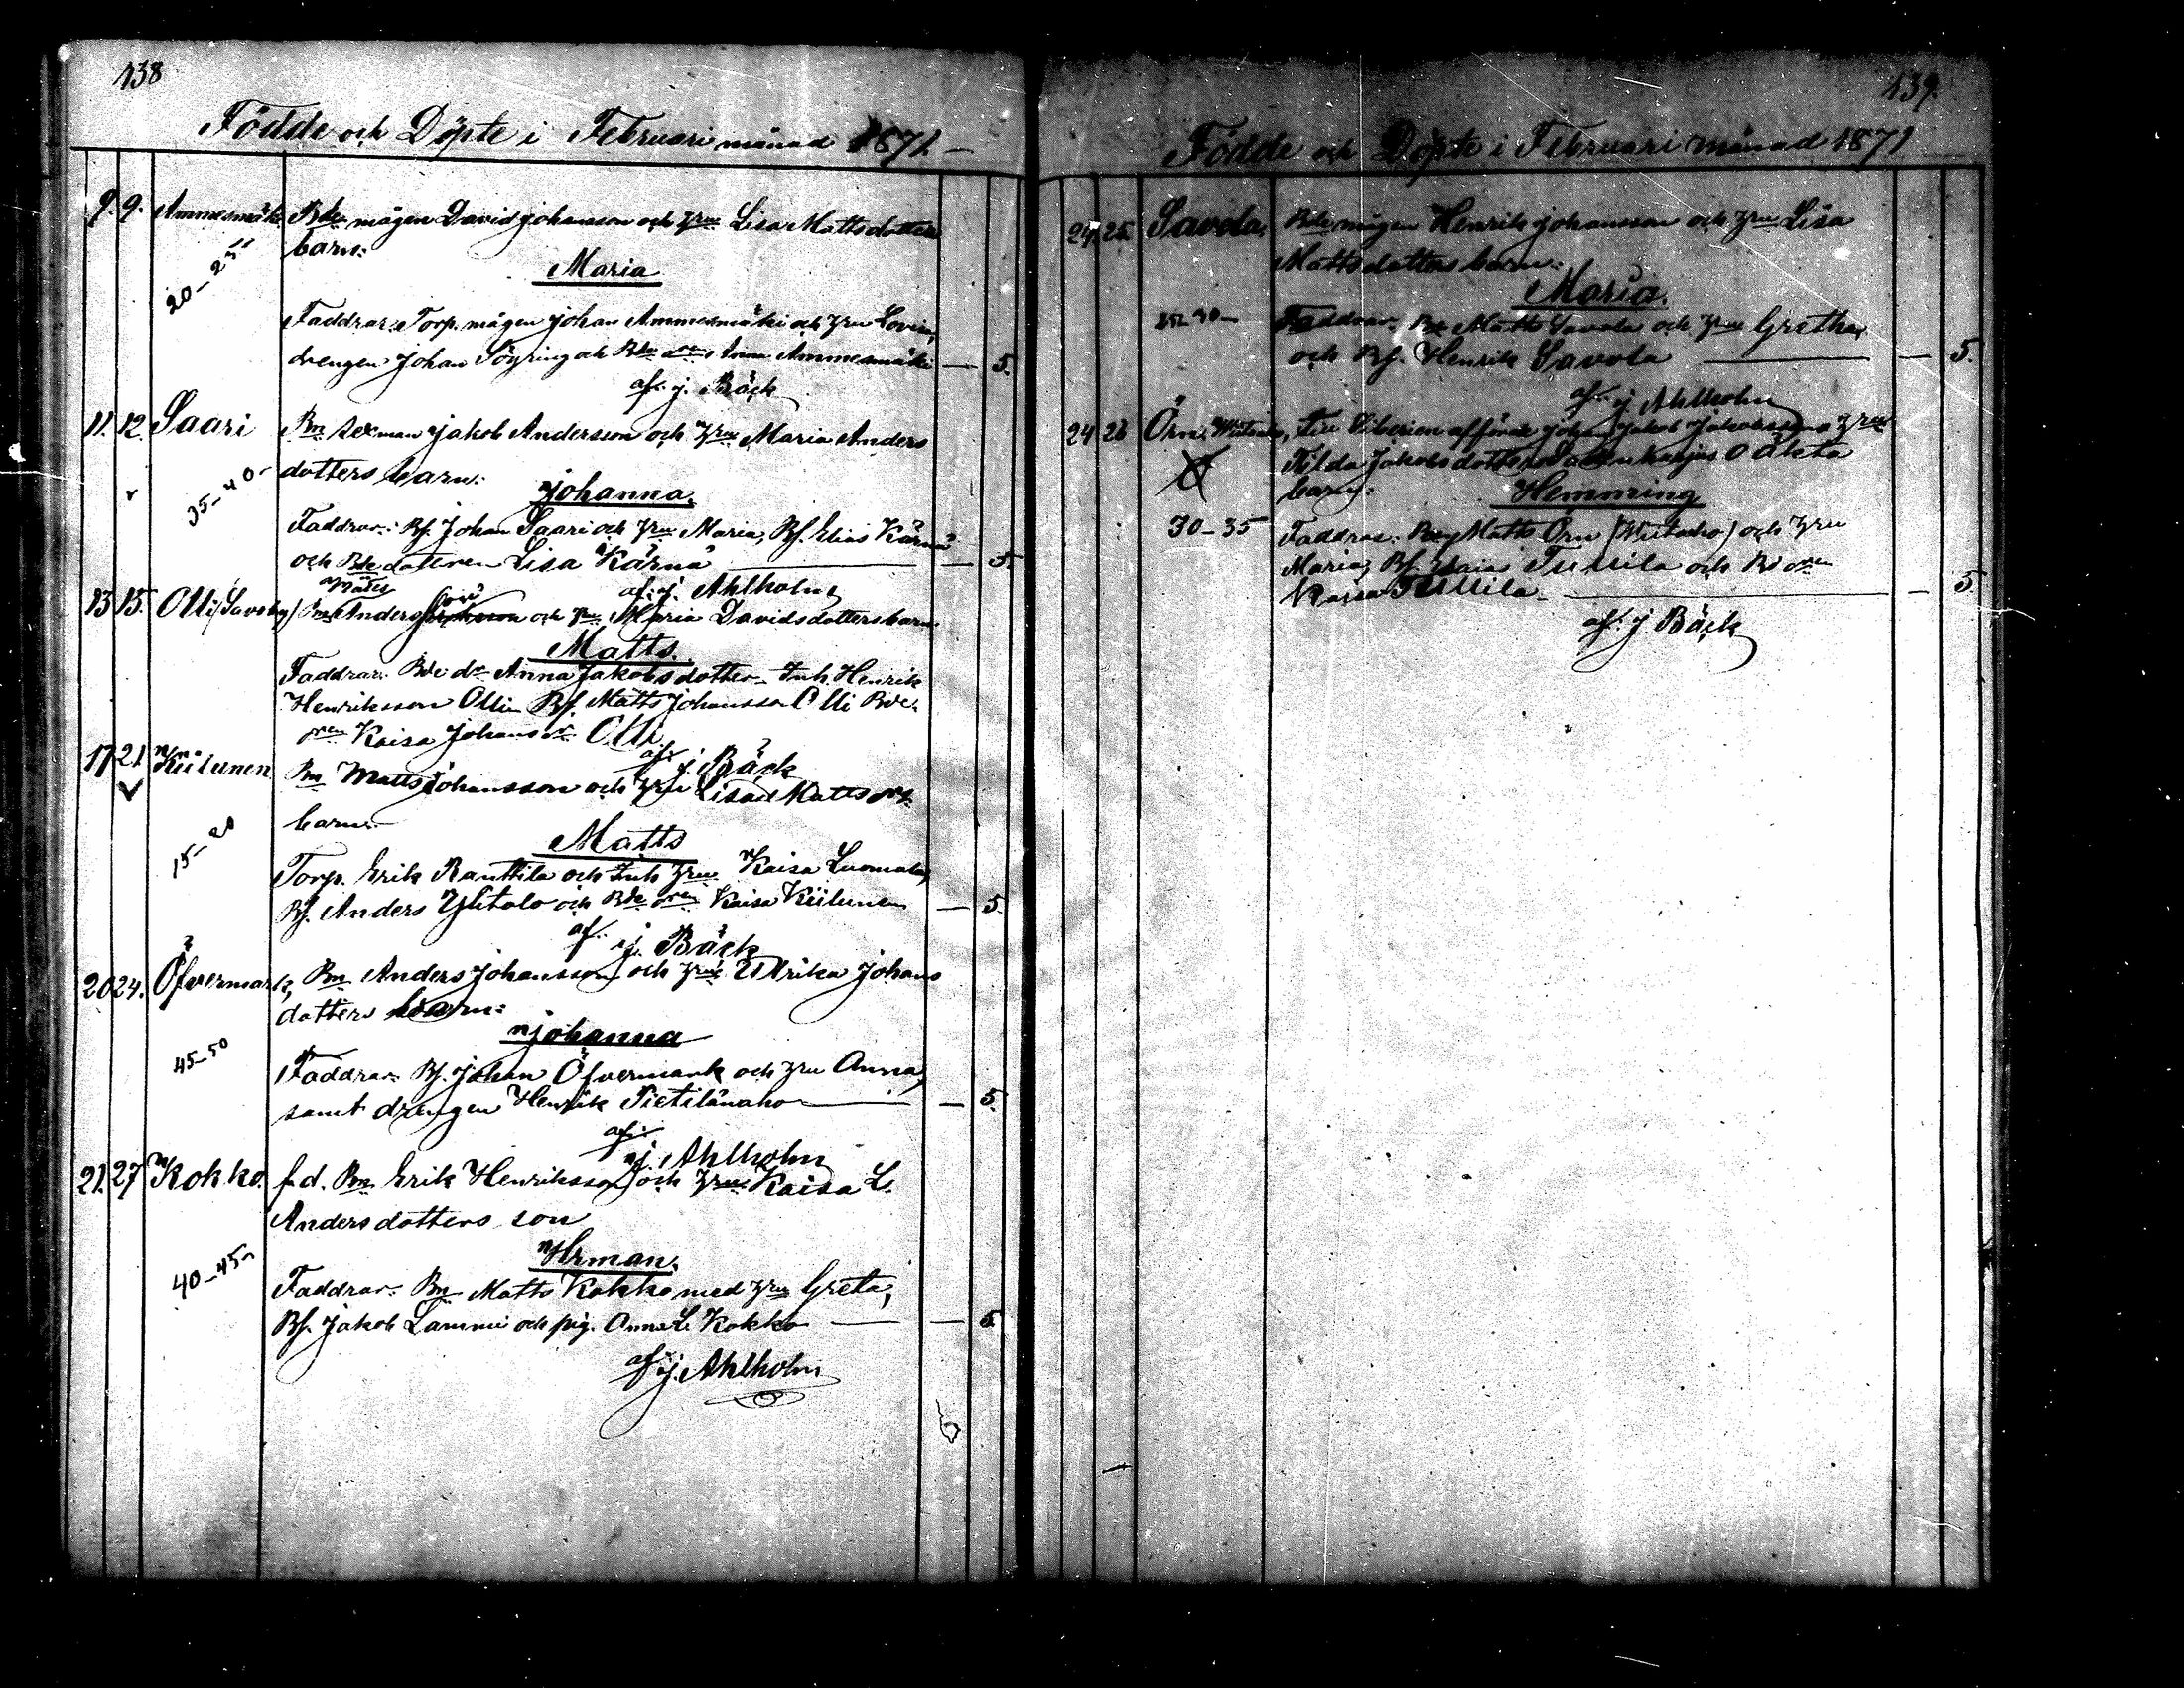 138
Födde och Döpte i Februari månad 1871.
9. 9. Ammesmäki Bde mågen David Johansson och Hru Lisa Mattsdotters
barn:
20-25
Maria
Faddrar: Torp. mågen Johan Ammesmäki och Hru Lovisa,
drengen Johan och Bde Anna Ammesmäki — 5.
af. J. Bäck
11. 12. Saari Bn sexman Jakob Andersson och Hru Maria Anders
dotters barn:
35-40-
Johanna.
Faddrar: Bf. Johan Saari och Hru Maria, Bf. Elias Kärnä
och Bde dottren Lisa Kärnä — 5.
af. J. Ahlholm
13 15. Olli (Savoby) Bn Anders och Hru Maria Davidsdotters barn
Matts.
Faddrar: Bde dr Anna Jakobsdotter Inh. Henrik
Henriksson Olli Bf. Matts Johansson Olli Bde
dren Kaisa Johans dr Olli
af. J. Bäck
17 21. Kiilunen Bn Matts Johansson och Hru Lisa Matts drs
barn:
15-20
Matts
Torp. Erik Ranttila och Inh Hru Kaisa Luomala,
Bf. Anders Ylitalo och Bde dren Kaisa Kiilunen — 5.
af. J. Bäck
20 24. Öfvermark, Bn Anders Johansson och Hru Ulrika Johans
dotters barn:
Johanna
45-50
Faddrar: Bf. Johan Öfvermark och Hru Anna,
samt drengen Henrik Pietilänaho — 5.
af.
J. Ahlholm
21. 27 Kokko. f.d. Bn Erik Henriksson och Hru Kaisa L.
Andersdotters son
Herman.
40-45
Faddrar: Bn Matts Kokko med Hru Greta,
Bf. Jakob Lammi och pig. Anna L. Kokko — 5.
af J. Ahlholm
139.
Födde och Döpte i Februari månad 1871
24. 25. Savola, Bde mågen Henrik Johansson och Hru Lisa
Mattsdotters barn:
Maria.
Faddrar: Bn Matts Savola och Hru Gretha,
och Bf. Henrik Savola — 5.
af J Ahlholm
24 26 Örn, Till Siberien afförde Johan Jakob Jakobssons Hru
Tilda Jakobsdotters oäkta
barn:
Hemming
30-35
Faddrar: Matts Örn och Hru
Maria, Bf. Tullila och Bde dren
Kaisa Tullila — 5
af. J. Bäck